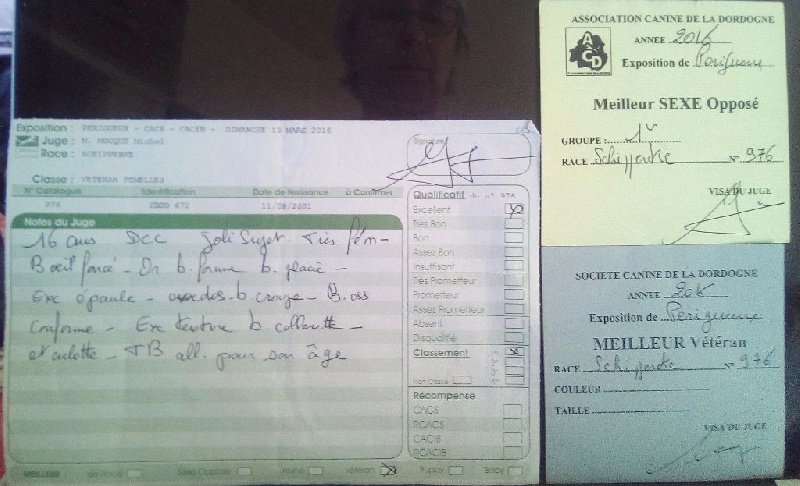 Exposition : PERIGUEUX - CACS - CACIB - DIMANCHE 13 MARS 2016
Juge : M. MOSQUE Michel
Race : SCHIPPERKE
Classe : VETERAN FEMELLES
N° Catalogue Identification Date de Naissance à Confirmer
976 672 11/08/2001
Notes du Juge
16 ans DCC Joli Sujet. Très fém-
B œil foncé - Or b. forme b. placée -
Exc épaule - b. croupe - B. oss
Conforme - Exc texture b collerette -
et culotte - TB all. pour son âge
MEILLEUR Jeune Vétéran Puppy Baby
Signature
Qualificatif
Excellent
Très Bon
Bon
Assez Bon
Insuffisant
Très Prometteur
Prometteur
Assez Prometteur
Absent
Disqualifié
Classement
Non Classé
Récompense
CACS
RCACS
CACIB
RCACIB
ASSOCIATION CANINE DE LA DORDOGNE
ACD
ANNEE 2016
Exposition de Périgueux
Meilleur SEXE Opposé
GROUPE : 1er
RACE Schipperke N° 976
VISA DU JUGE
SOCIETE CANINE DE LA DORDOGNE
ANNEE 2016
Exposition de Périgueux
MEILLEUR Vétéran
RACE Schipperke N° 976
COULEUR
TAILLE
VISA DU JUGE